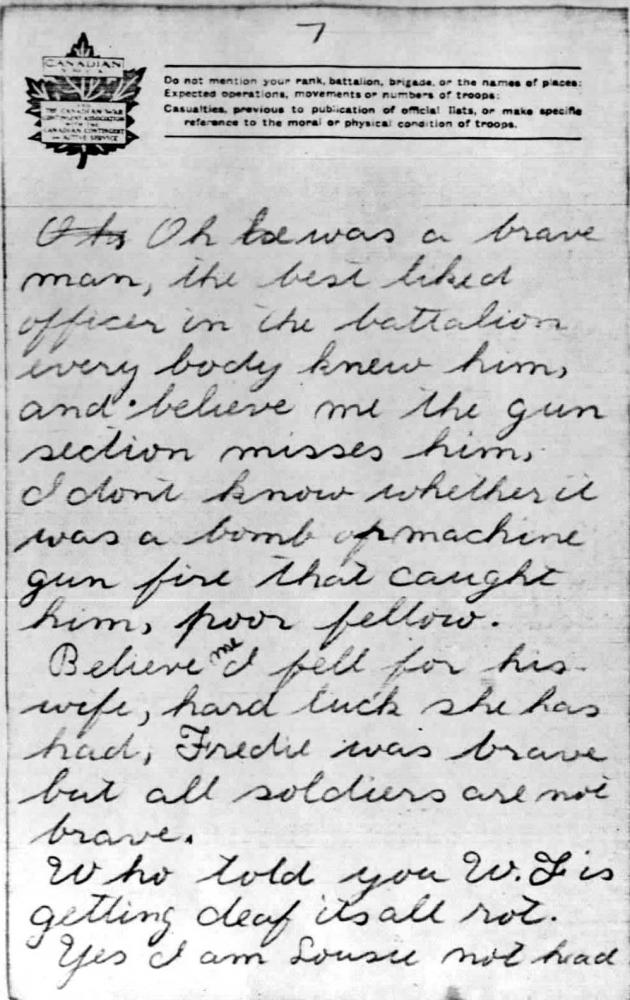 7
CANADIAN
Y.M.C.A.
AND
THE CANADIAN WAR
CONTINGENT ASSOCIATION
WITH THE
CANADIAN CONTINGENT
ON ACTIVE SERVICE
Do not mention your rank, battalion, brigade, or the names of places:
Expected operations, movements or numbers of troops:
Casualties, previous to publication of official lists, or make specific
reference to the moral or physical condition of troops.
Oh he was a brave
man, the best liked
officer in the battalion
every body knew him,
and believe me the gun
section misses him,
I dont know whether it
was a bomb or machine
gun fire that caught
him, poor fellow.
Believe me I fell for his
wife, hard luck she has
had, Fredie was brave
but all soldiers are not
brave.
Who told you W.F is
getting deaf its all rot.
Yes I am Lousie not head